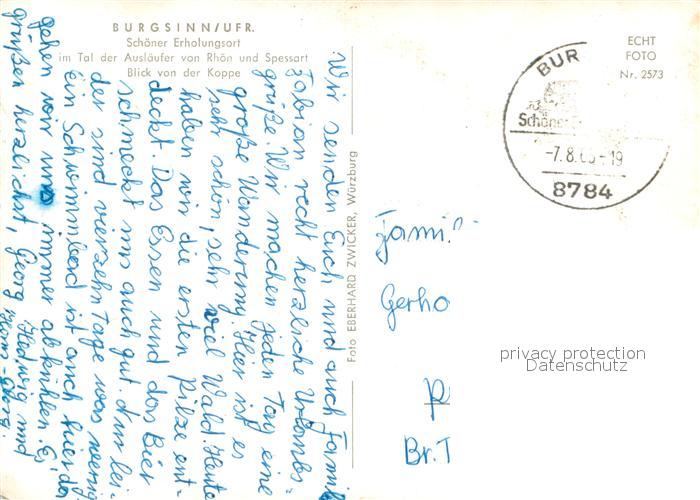 BURGSINN/UFR.
Schöner Erholungsort
im Tal der Ausläufer von Rhön und Spessart
Blick von der Koppe
Wir senden Euch und auch Famil
Fabian recht herzliche Urlaubs-
grüße. Wir machen jeden Tag eine
große Wanderung. Hier ist es
sehr schön, sehr viel Wald. Heute
haben wir die ersten Pilze ent-
deckt. Das Essen und das Bier
schmeckt uns auch gut. Nur lei-
der sind vierzehn Tage was wenig
Ein Schwimmbad ist auch hier da
gehen wir uns immer abkühlen. Es
grüßen herzlichst, Georg Hedwig und
Hans-Georg.
Foto EBERHARD ZWICKER, Würzburg
ECHT
FOTO
Nr. 2573
BUR
Schöner
-7.8.65-19
8784
Fami
Gerho
Br.T
privacy protection
Datenschutz